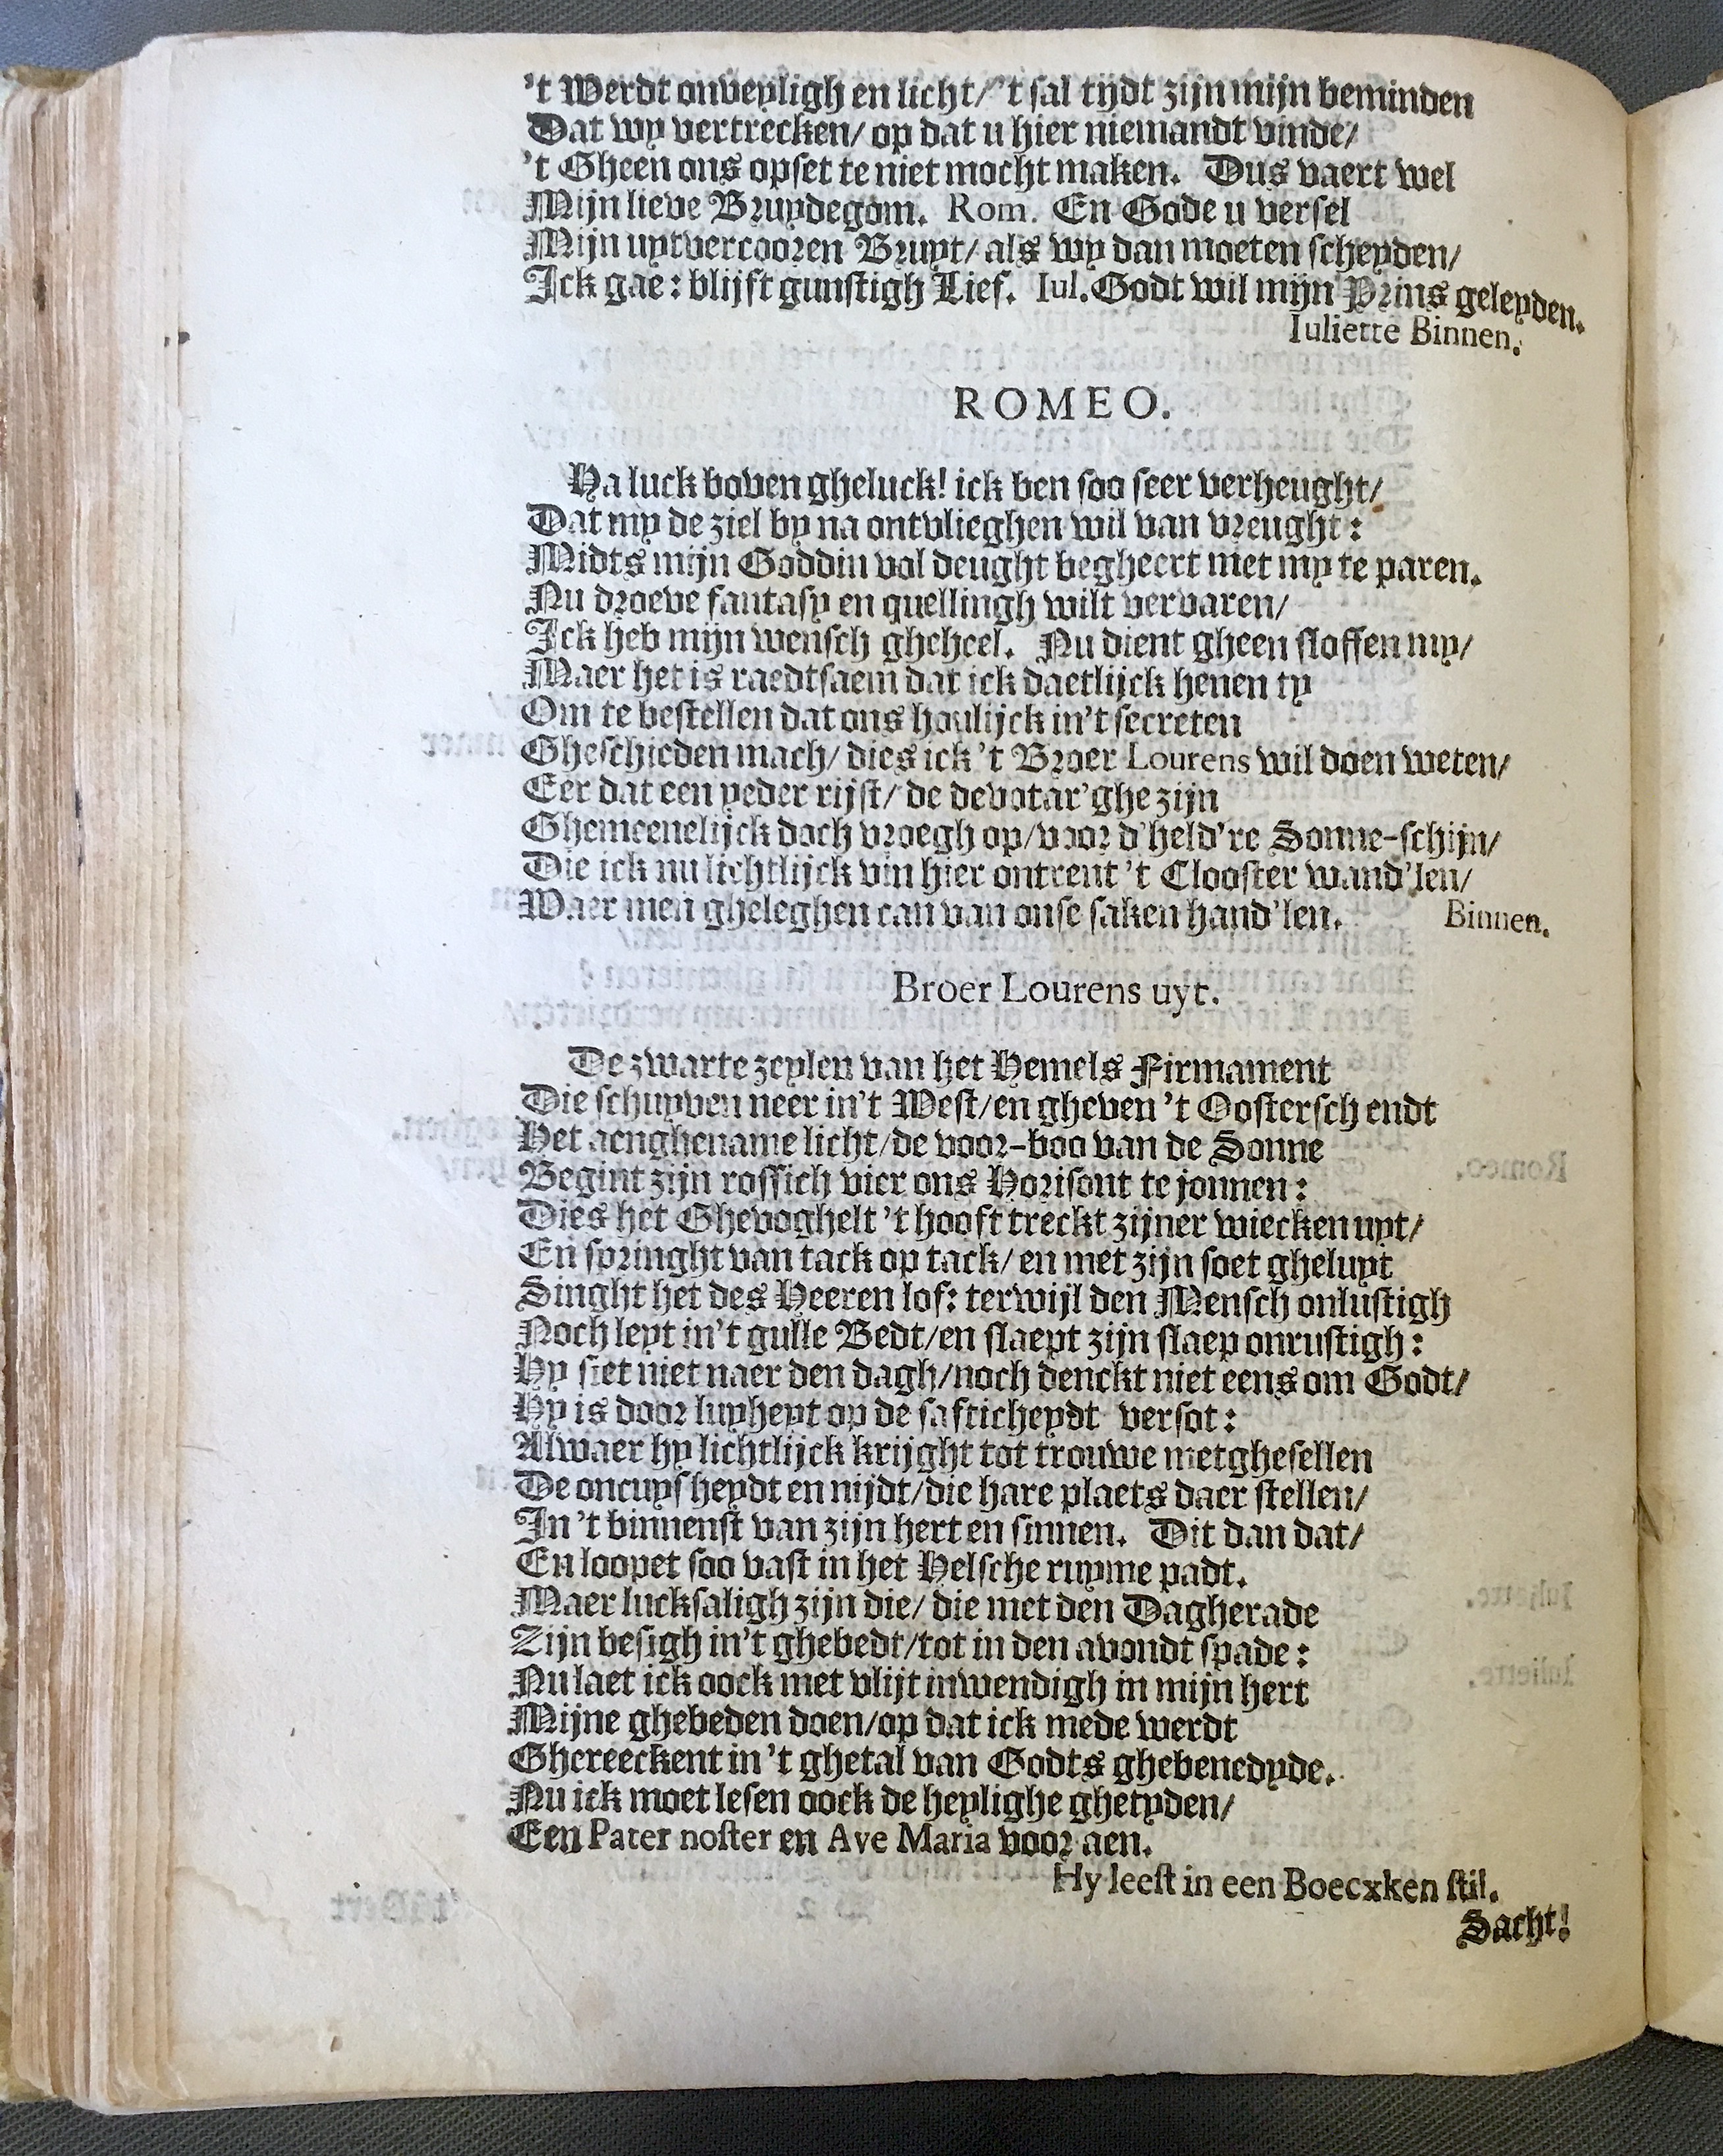 't Werdt onveyligh en licht/ 't sal tijdt zijn mijn beminden
Dat wy vertrecken/ op dat u hier niemandt vinde/
't Gheen ons opset te niet mocht maken. Dus vaert wel
Mijn lieve Bruydegom. Rom. En Gode u versel
Mijn uytvercooren Bruyt/ als wy dan moeten scheyden/
Ick gae: blijft gunstigh Lief. Iul. Godt wil mijn Prins geleyden.
Iuliette Binnen.
ROMEO.
Ha luck boven gheluck! ick ben soo seer verheught/
Dat my de ziel by na ontvlieghen wil van vreught:
Midts mijn Goddin vol deught begheert met my te paren.
Nu droeve fantasy en quellingh wilt vervaren/
Ick heb mijn wensch gheheel. Nu dient gheen sloffen my/
Maer het is raedtsaem dat ick daetlijck henen ty
Om te bestellen dat ons houlijck in't secreten
Gheschieden mach/ dies ick 't Broer Lourens wil doen weten/
Eer dat een yeder rijst/ de devotar'ghe zijn
Ghemeenelijck doch vroegh op/ voor d'held're Sonne-schijn/
Die ick nu lichtlijck vin hier ontrent 't Clooster wand'len/
Waer men gheleghen can van onse saken hand'len. Binnen.
Broer Lourens uyt.
De zwarte zeylen van het Hemels Firmament
Die schuyven neer in't West/ en gheven 't Oostersch endt
Het aenghename licht/ de voor-boo van de Sonne
Begint zijn rossich vier ons Horisont te jonnen:
Dies het Ghevoghelt 't hooft treckt zijner wiecken uyt/
En springht van tack op tack/ en met zijn soet gheluyt
Singht het des Heeren lof: terwijl den Mensch onlustigh
Noch leyt in't gulle Bedt/ en slaept zijn slaep onrustigh:
Hy siet niet naer den dagh/ noch denckt niet eens om Godt/
Hy is door luyheyt op de safticheydt versot:
Alwaer hy lichtlijck krijght tot trouwe metghesellen
De oncuysheydt en nijdt/ die hare plaets daer stellen/
In 't binnenst van zijn hert en sinnen. Dit dan dat/
En loopet soo vast in het Helsche ruyme padt.
Maer lucksaligh zijn die/ die met den Dagherade
Zijn besigh in't ghebedt/ tot in den avondt spade:
Nu laet ick oock met vlijt inwendigh in mijn hert
Mijne ghebeden doen/ op dat ick mede werdt
Ghereeckent in 't ghetal van Godts ghebenedyde.
Nu ick moet lesen oock de heylighe ghetyden/
Een Pater noster en Ave Maria voor aen.
Hy leest in een Boecxken stil.
Sacht!